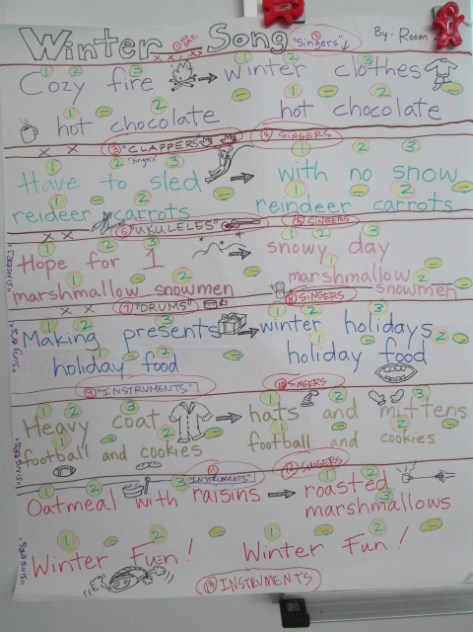 Winter Song "Singers" By - Room
Cozy fire → winter clothes
hot chocolate hot chocolate
③ "CLAPPERS" ④ SINGERS
"singers"
Have to sled → with no snow
reideer carrots reindeer carrots
⑤ "UKULELES" SINGERS
Hope for 1 snowy day
marshmallow snowmen marshmallow snowmen
⑦ "DRUMS" ⑧ SINGERS
Making presents → winter holidays
holiday food holiday food
⑨ "INSTRUMENTS" ⑩ SINGERS
Heavy coat → hats and mittens
football and cookies football and cookies
⑪ "INSTRUMENTS" ⑫ SINGERS
Oatmeal with raisins → roasted marshmallows
Winter Fun! Winter Fun!
⑬ INSTRUMENTS
"SINGERS"
"Singers"
"SINGERS"
"SINGERS"